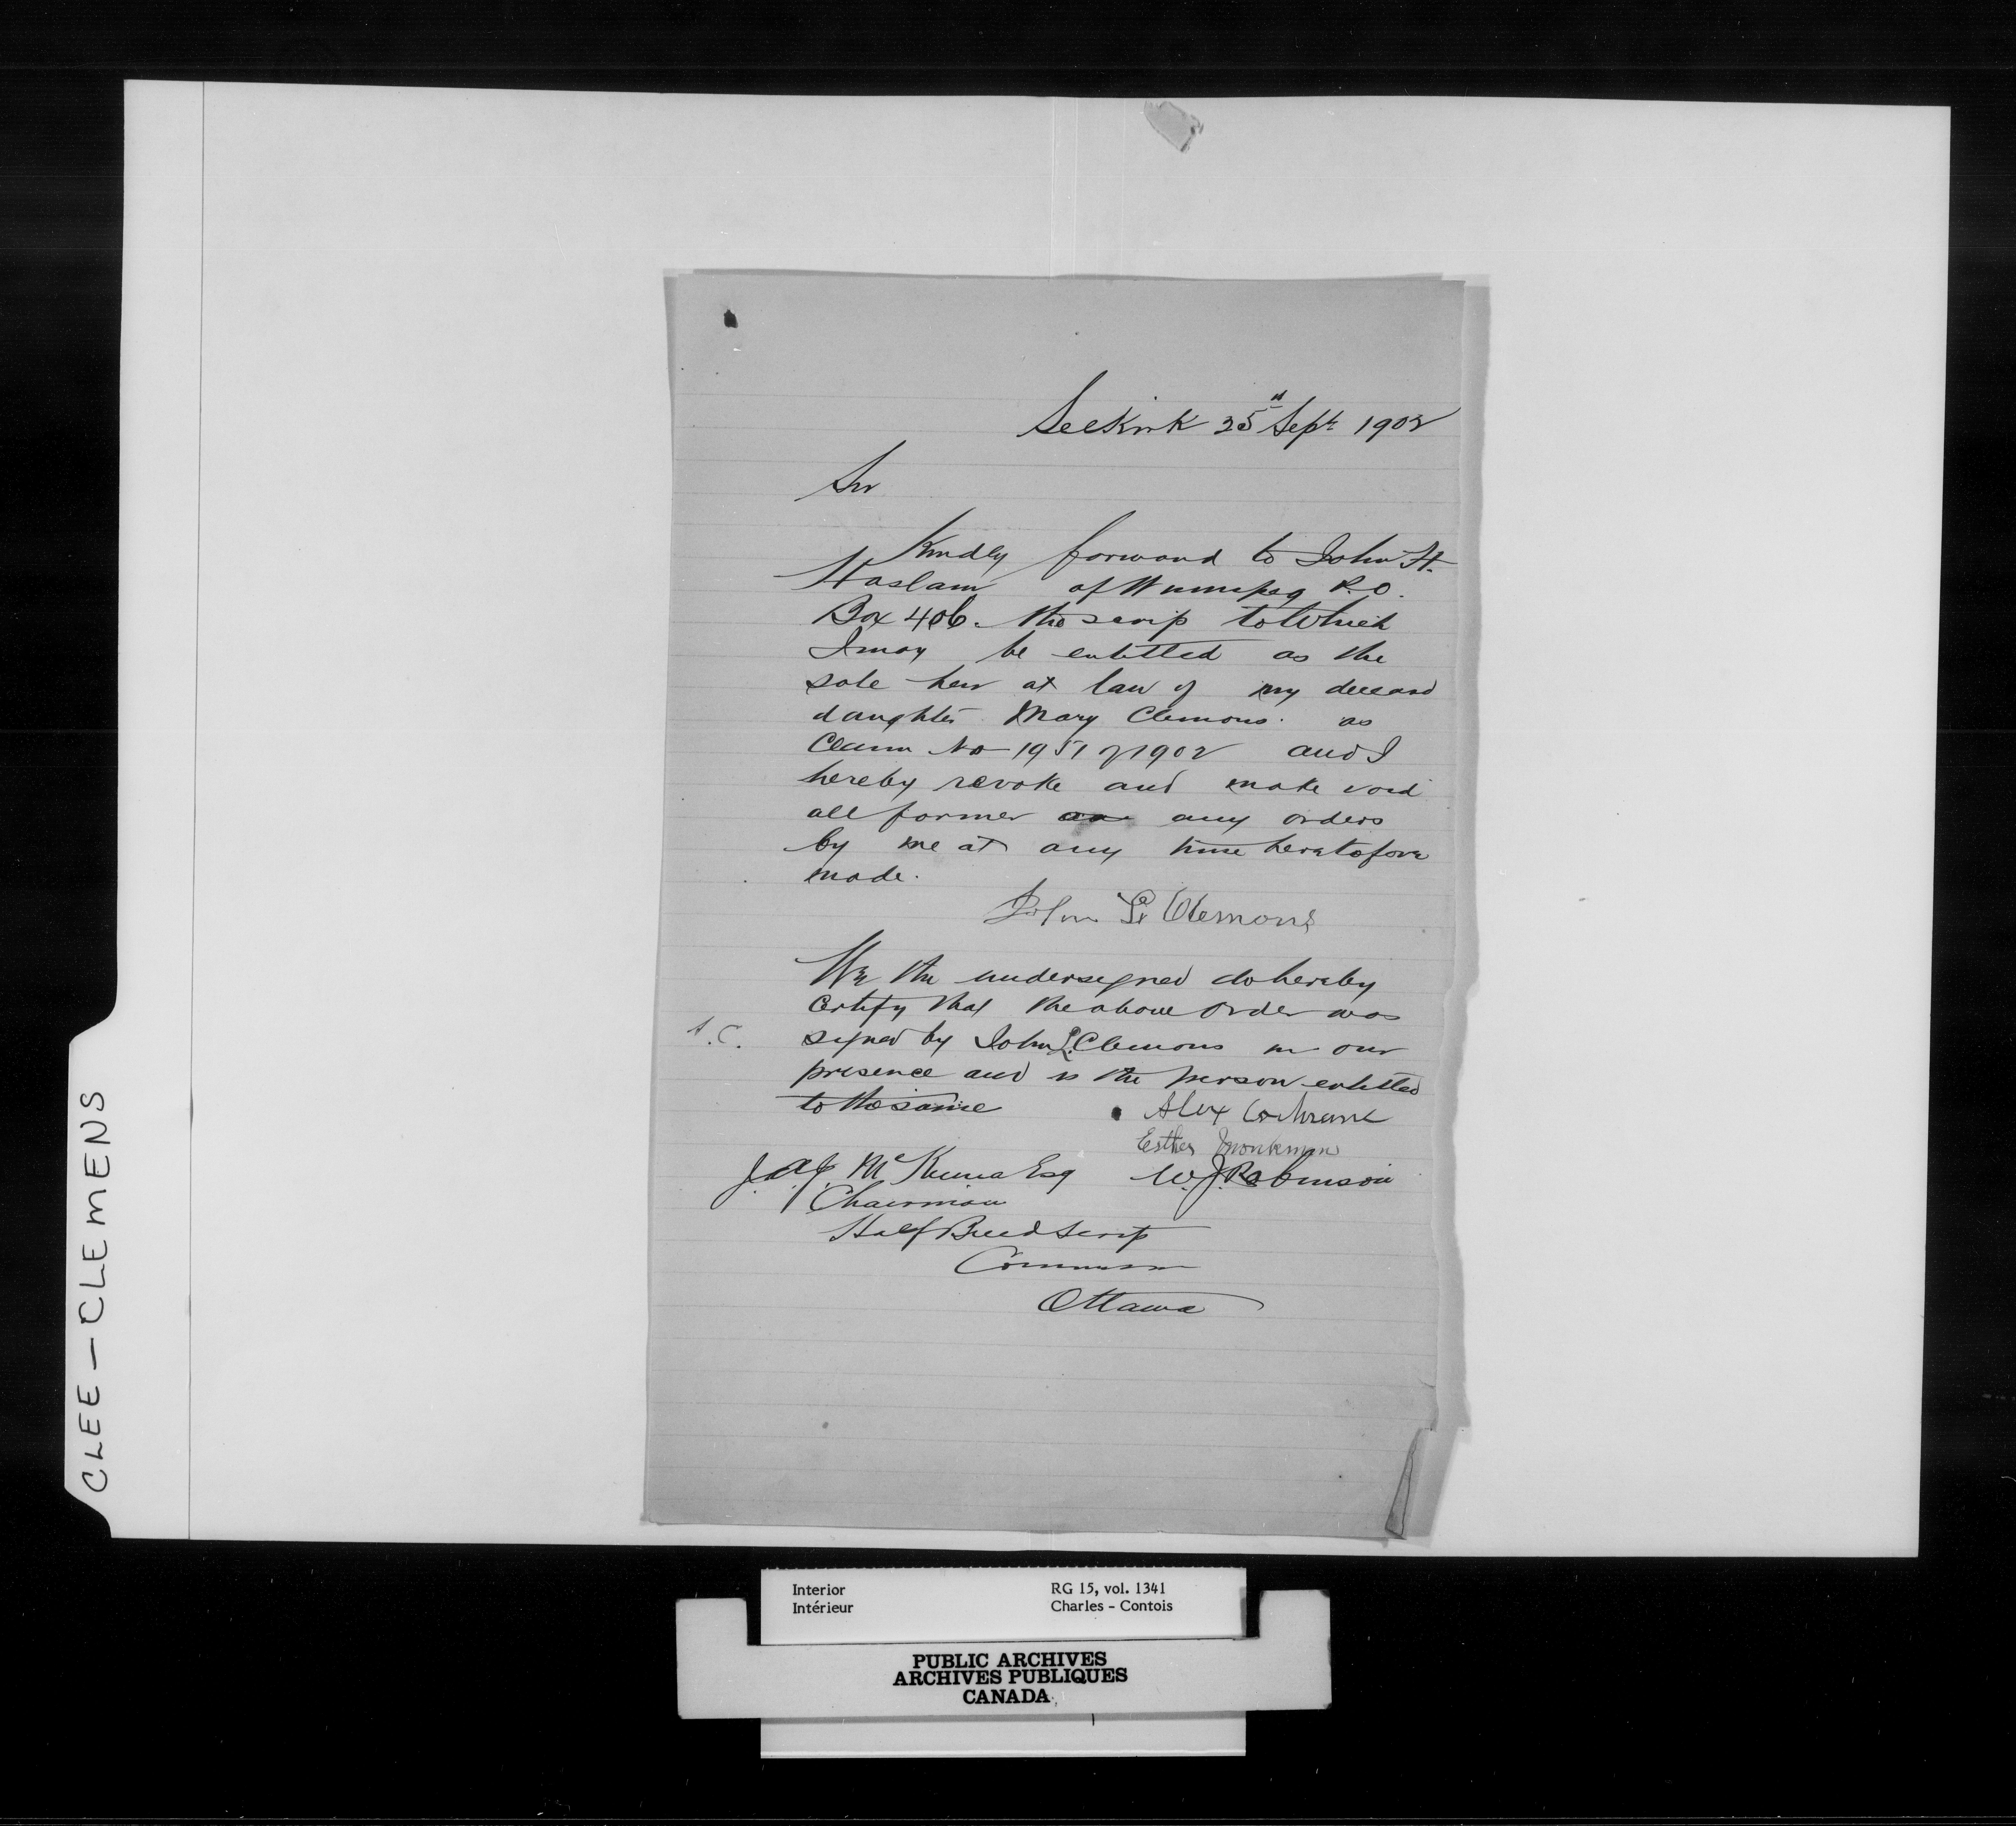 Selkirk 25th Sept 1902
Sir
Kindly forward to John H.
Haslam of Winnipeg P.O.
Box 406. the scrip to which
I may be entitled as the
sole heir at law of my deceasd
daughter Mary Clemons. as
Claim No 1951 of 1902 and I
hereby revoke and make void
all former any orders
by me at any time heretofore
made.
John L. Clemons
We the undersigned do hereby
Certify that the above order was
A.C. signed by John L. Clemons in our
presence and is the person entitled
to the same
Alex Cochrane
Esther Monkman
J.A.J. McKenna Esq W.J. Robinson
Chairman
Half Breed Scrip
Commission
Ottawa
CLEE - CLEMENS
Interior RG 15, vol. 1341
Intérieur Charles - Contois
PUBLIC ARCHIVES
ARCHIVES PUBLIQUES
CANADA